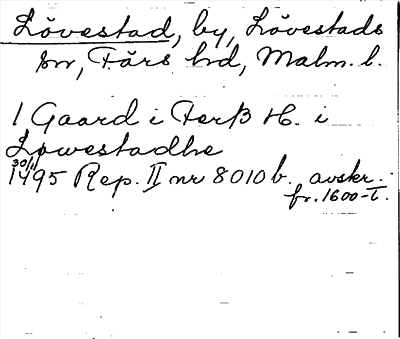 Lövestad, by, Lövestads
sn, Färs hd, Malm. l.
1 Gaard i Ferß H. i
Lowestadhe
30/11
1495 Rep. II nr 8010 b. avskr.
fr. 1600-t.